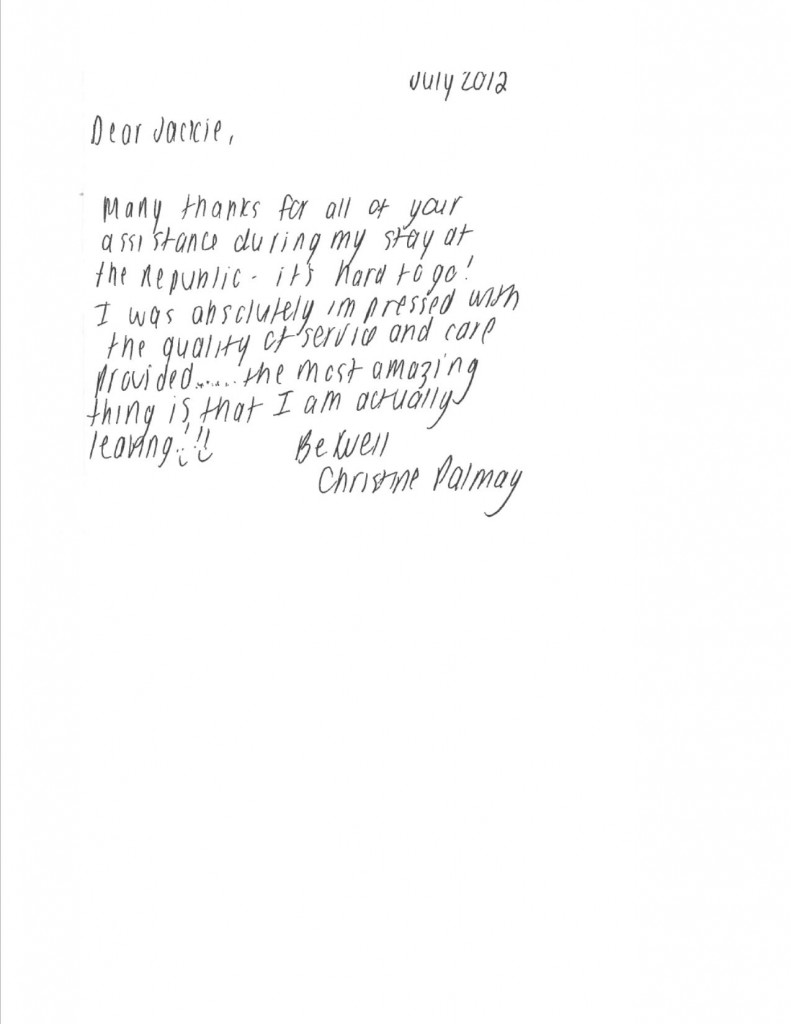 July 2012
Dear Jackie,
Many thanks for all of your
assistance during my stay at
the Republic - it's hard to go!
I was absolutely impressed with
the quality of service and care
provided...... the most amazing
thing is that I am actually
leaving!!!
Be Well
Christine Palmay